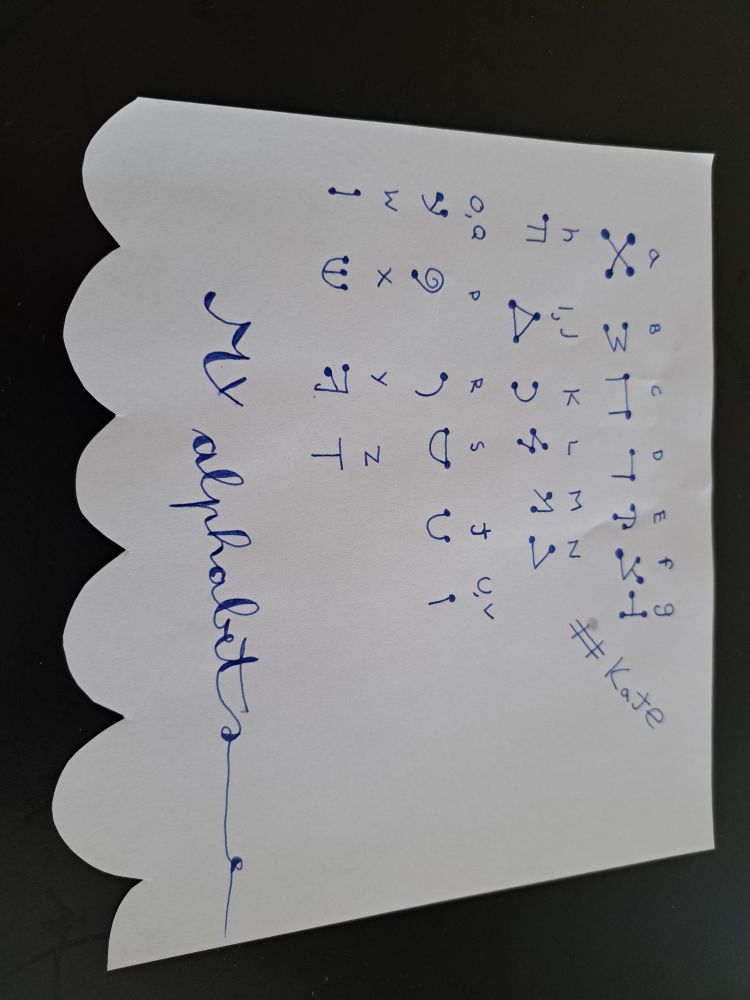 a B C D E f g
#Kate
h I,J K L M N
O,Q P R S t U,V
W X Y Z
My alphabets